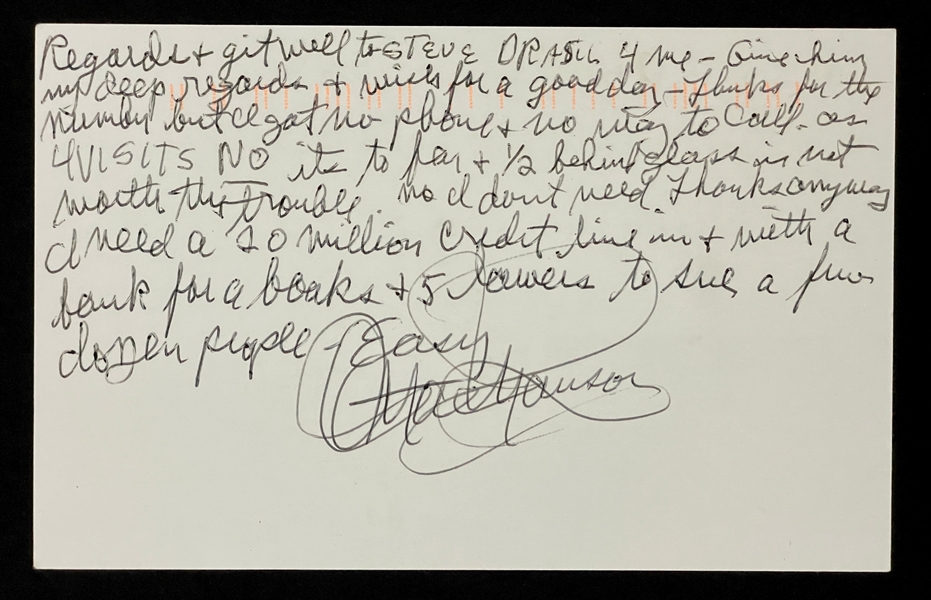 Regards + git well to STEVE 4 me - Give him
my deep regards + wish for a good day - Thanks for the
number but I got no phone + no way to call. as
4 VISITS NO its to far + 1/2 behind glass is not
worth the trouble. no I dont need Thanks anyway
I need a 20 million credit line in + with a
bank for a books + 5 lawers to sue a few
dozen people - Easy
Manson